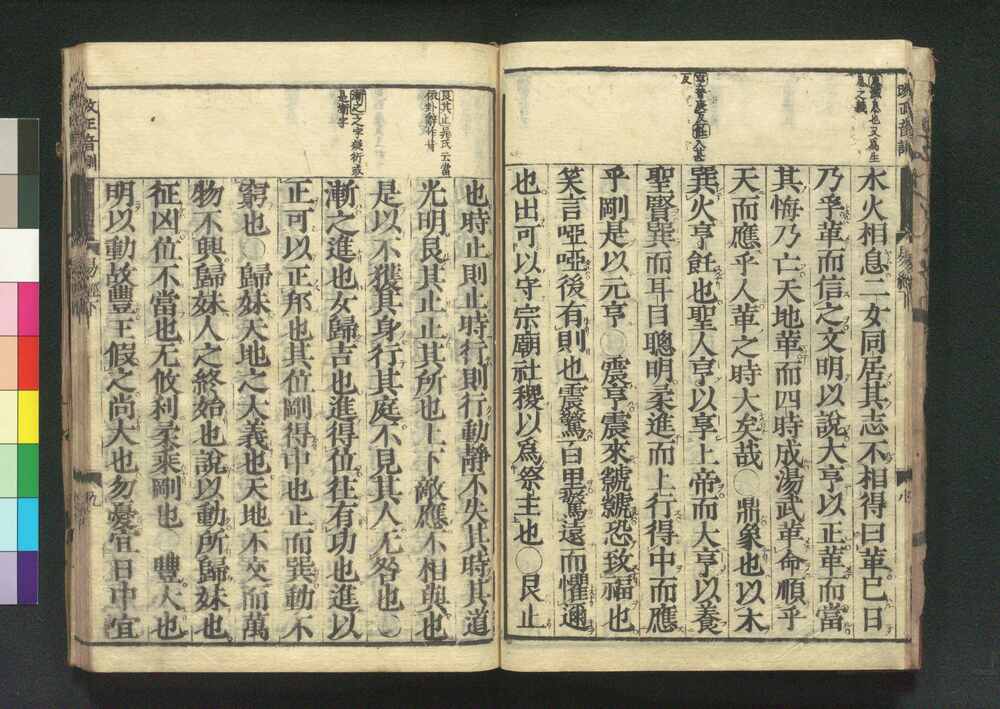 水火相息二女同居其志不相得曰革已日
乃孚革而信之文明以說大亨以正革而當
其悔乃亡天地革而四時成湯武革命順乎
天而應乎人革之時大矣哉○鼎象也以木
巽火亨飪也聖人亨以享上帝而大亨以養
聖賢巽而耳目聰明柔進而上行得中而應
乎剛是以元亨○震亨震來虩虩恐致福也
笑言啞啞後有則也震驚百里驚遠而懼邇
也出可以守宗廟社稷以爲祭主也○艮止
也時止則止時行則行動靜不失其時其道
光明艮其止止其所也上下敵應不相與也
是以不獲其身行其庭不見其人无咎也○
漸之進也女歸吉也進得位往有功也進以
正可以正邦也其位剛得中也止而巽動不
窮也○歸妹天地之大義也天地不交而萬
物不興歸妹人之終始也說以動所歸妹也
征凶位不當也无攸利柔乘剛也○豐大也
明以動故豐王假之尚大也勿憂宜日中宜
改正音訓
易經下
九